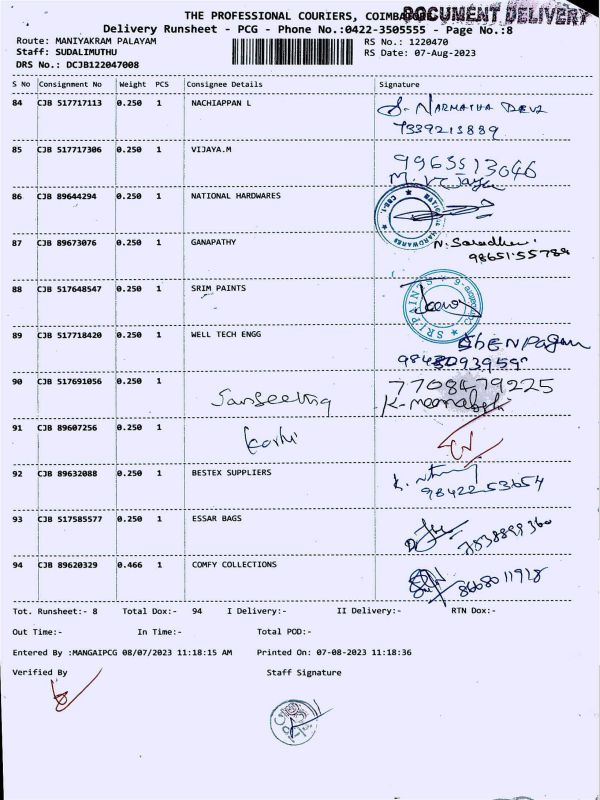 THE PROFESSIONAL COURIERS, COIMBATORE
DOCUMENT DELIVERY
Delivery Runsheet - PCG - Phone No.:0422-3505555 - Page No.:8
Route: MANIYAKRAM PALAYAM RS No.: 1220470
Staff: SUDALIMUTHU RS Date: 07-Aug-2023
DRS No.: DCJB122047008
S No Consignment No Weight PCS Consignee Details Signature
84 CJB 517717113 0.250 1 NACHIAPPAN L S. NARMATHA DEVI
7339213889
85 CJB 517717306 0.250 1 VIJAYA.M 9963513046
M. Vijaya
86 CJB 89644294 0.250 1 NATIONAL HARDWARES NATIONAL HARDWARES
87 CJB 89673076 0.250 1 GANAPATHY N. Saradha
9865155789
88 CJB 517648547 0.250 1 SRIM PAINTS SRI PAINTS
89 CJB 517718420 0.250 1 WELL TECH ENGG
90 CJB 517691056 0.250 1 7708479225
91 CJB 89607256 0.250 1
92 CJB 89632088 0.250 1 BESTEX SUPPLIERS
9842253654
93 CJB 517585577 0.250 1 ESSAR BAGS
94 CJB 89620329 0.466 1 COMFY COLLECTIONS 8668011928
Tot. Runsheet:- 8 Total Dox:- 94 I Delivery:- II Delivery:- RTN Dox:-
Out Time:- In Time:- Total POD:-
Entered By :MANGAIPCG 08/07/2023 11:18:15 AM Printed On: 07-08-2023 11:18:36
Verified By Staff Signature